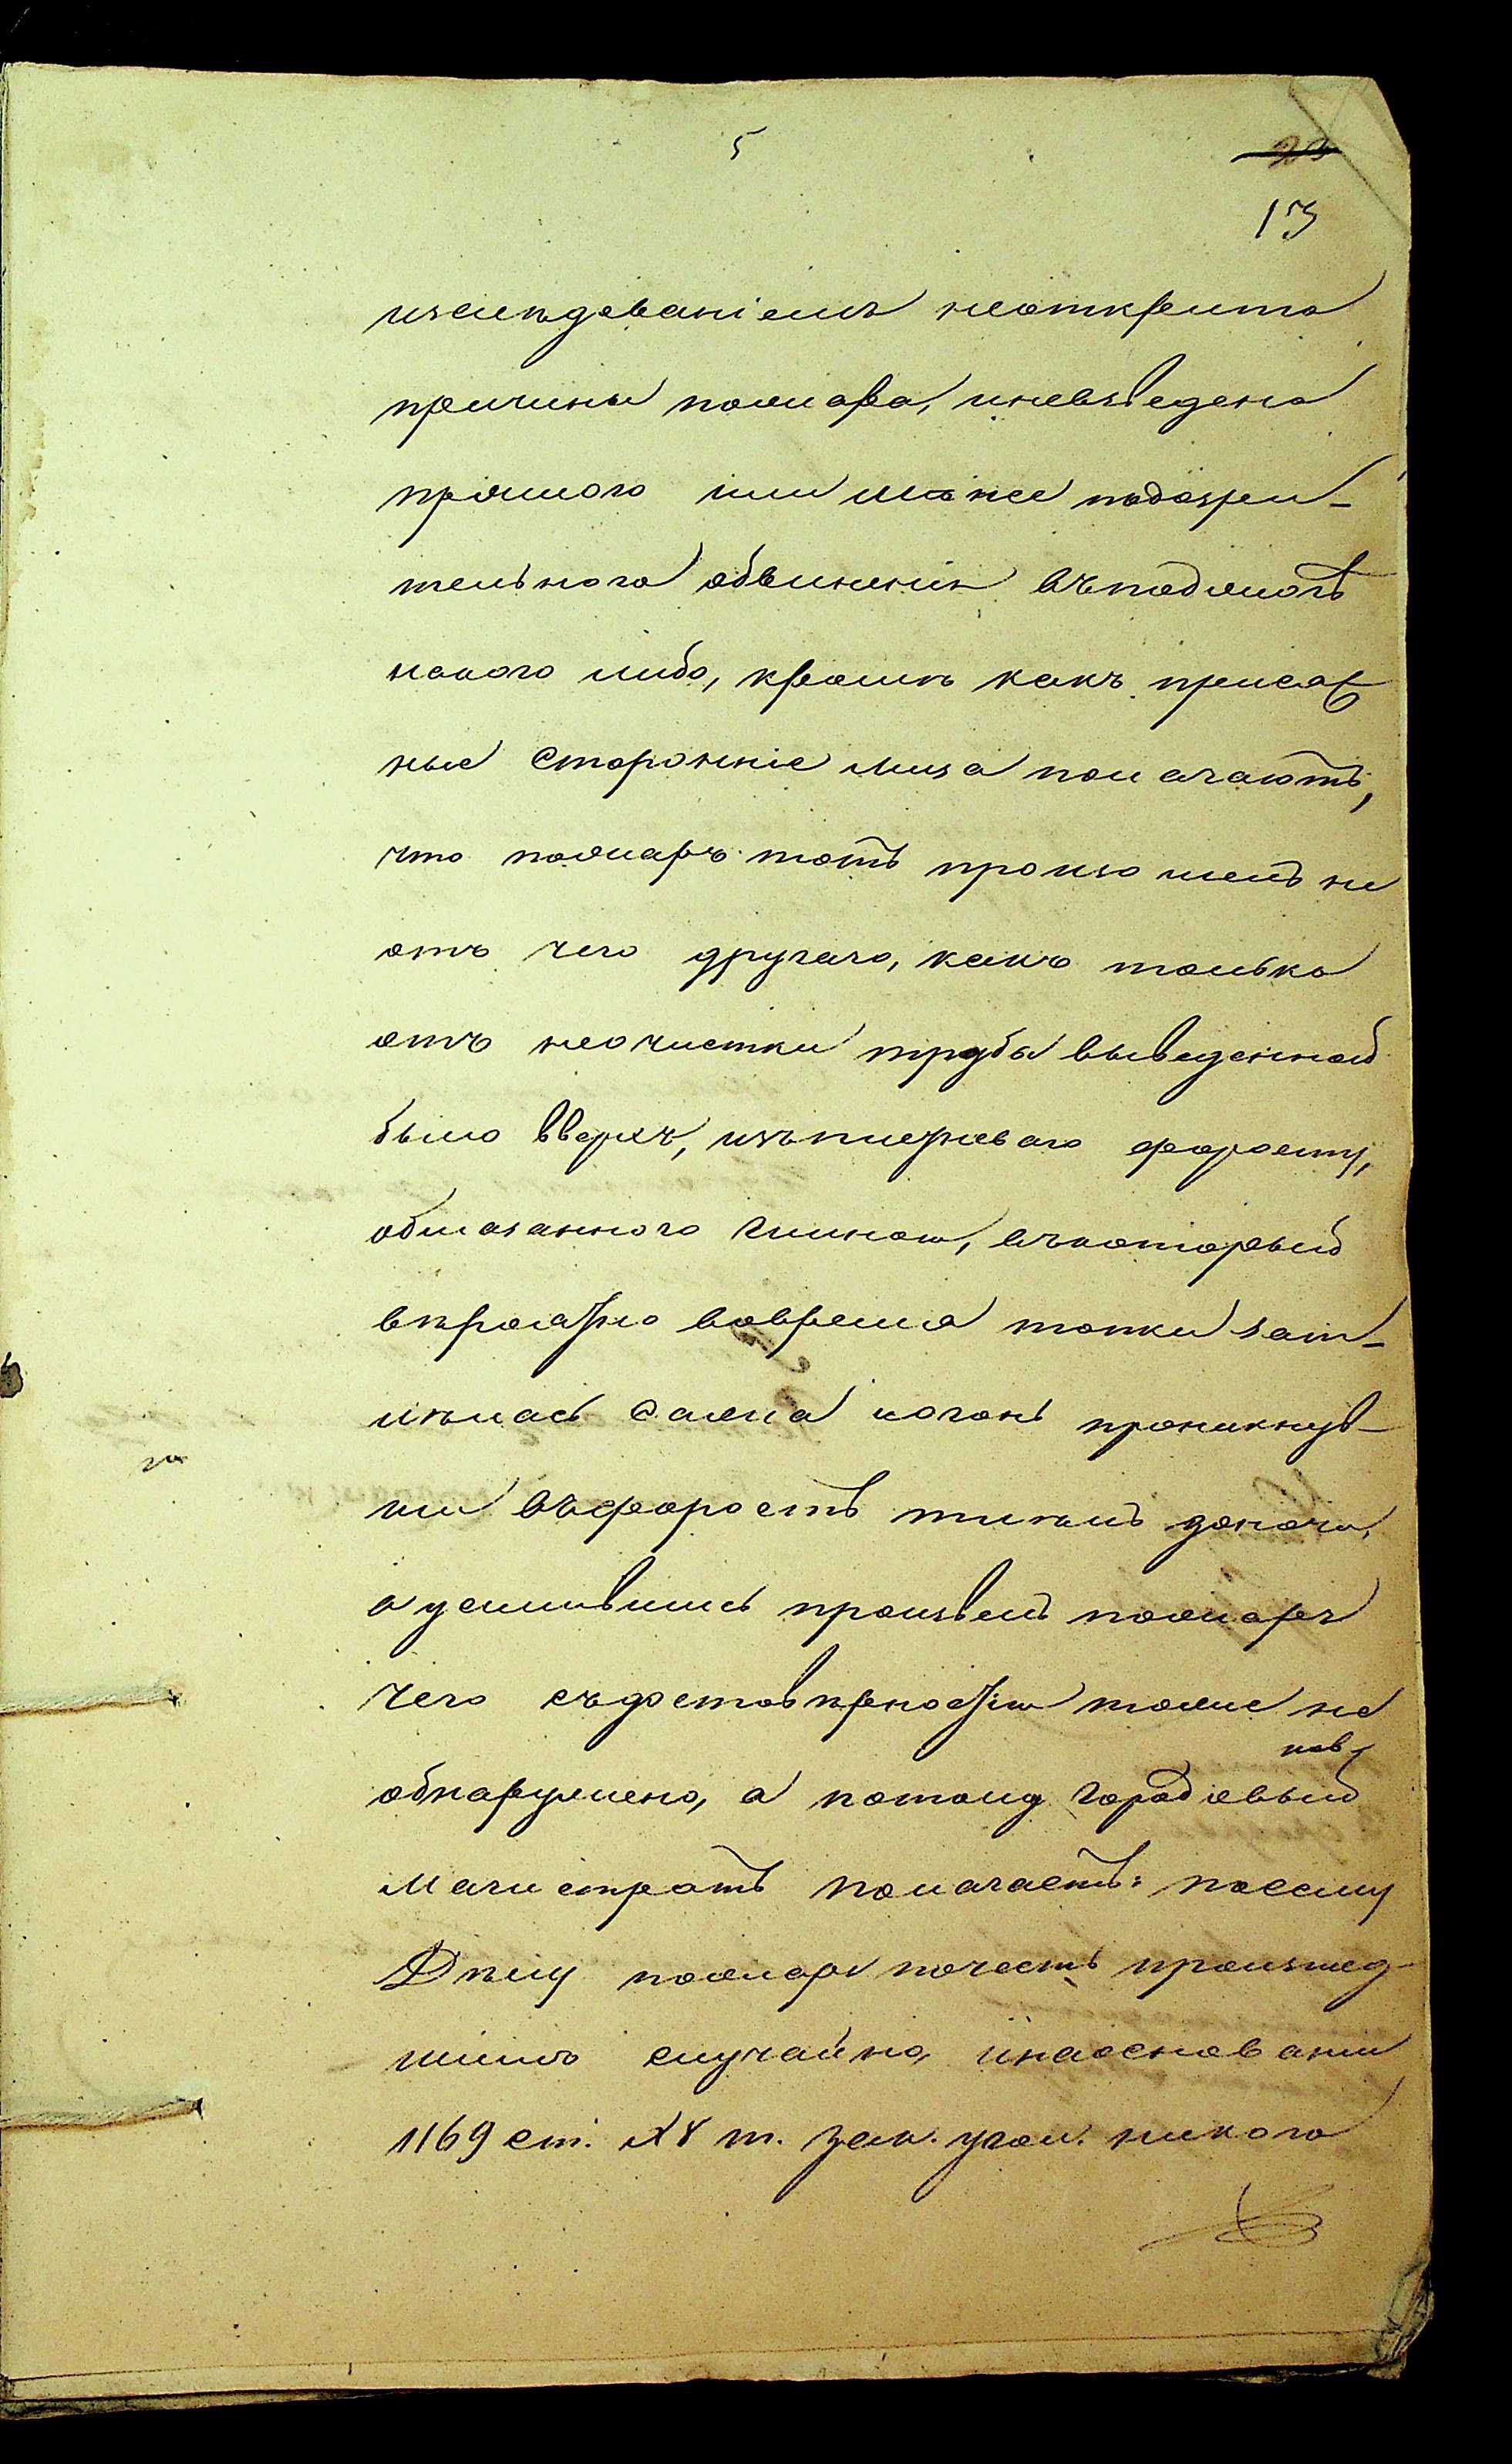 5
23
13
изслѣдованіемъ неоткрыто
причины пожара, и невзведено
прямого или менее подозри-
тельного обвиненія въ поджогѣ
какого либо, кромѣ какъ присяж
ные сторонніе лица полагаютъ,
что пожаръ тотъ произошелъ ни
отъ чего другаго, какъ только
отъ неочистки трубы выведенной
было вверхъ, изъ плетневаго форосту,
обмазанного глиною, въ который
вѣроятно вовремя топки зат-
милась сажа и огонь проникнув-
ши въ форостъ тлилъ до ночи,
а усилившись произвелъ пожаръ
чего съ достовѣрностію тоже не
обнаружено, а потому городовый
Магистратъ полагаетъ: по сему
Дѣлу пожаръ почесть произшед-
шимъ случайно, и на основаніи
1169 ст. XV т. зак. угол. никого